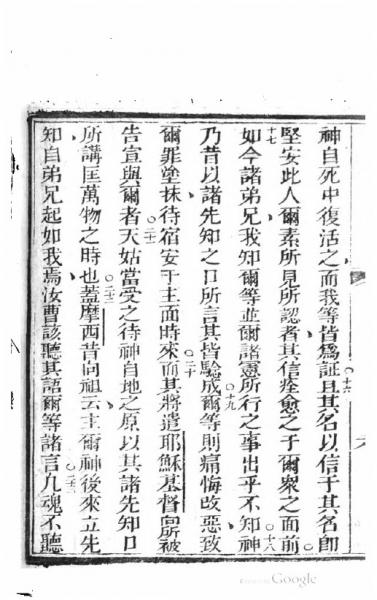 神自死中復活之而我等皆爲証○十六且其名以信于其名卽
堅安此人爾素所見所認者其信痊愈之子爾衆之面前
○十七如今諸弟兄我知爾等並爾諸憲所行之事出乎不知○十八神
乃昔以諸先知之口所言其皆驗成○十九爾等則痛悔改惡致
爾罪塗抹待宿安于主面時來○二十而其將遣耶穌基督向所被
告宣與爾者○二十一天姑當受之待神自地之原以其諸先知口
所講匡萬物之時也○二十二蓋摩西昔向祖云主爾神後來立先
知自弟兄起如我焉汝曹該聽其語爾等諸言○二十三凡魂不聽
Google